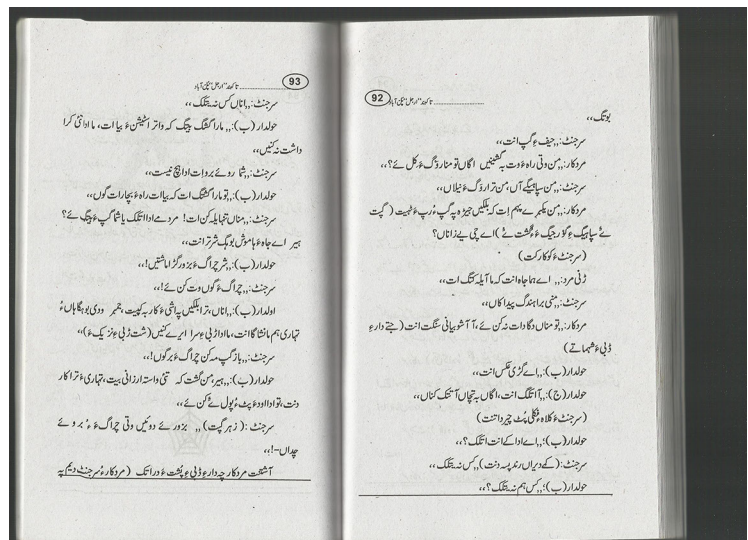 92 تاکبند "ارجل" بچّین آباد
بوتگ،،
سرجنٹ:,,حیف ءِ گپ انت،،
مردکار:,,من وتی راہ ءَ وت پہ گشینیں اگاں تو منا رَدگ ءَ کل ئے؟،،
سرجنٹ:,,من سپاہیگے آں، من ترا رَدگ ءَ نیلاں،،
مردکار:,,من یکبرے پہم اِت کہ بلکیں جیڑہ پہ گپ ءُ رپ ءَ ٹہیت (گپت
ئے سپاہیگ ءِ ءَ گشت ئے) اے چی یے زاناں؟
(سرجنٹ ءَ کوکارکت)
ژنی مرد:,, اے ہما جاہ انت کہ ما آیلہ کتگ ات،،
سرجنٹ:,,منی براہندگ پیدا کاں،،
مردکار:,,تو مناں دگا دات نہ کن ئے، آ آشوبیانی سنگت انت (جتے دار ءِ
ڈبّی ءَ شہماتے)
حولدار(ب):,,اے گڑی عکس انت،،
حولدار(ج):,,آ اتلگ انت، اگاں بہ تچاں آ تنگ کناں،،
(سرجنٹ ءَ کلاہ ءُ نکلی پٹ چیر داتنت)
حولدار(ب):,,اے ادا کے انت اتلگ؟،،
سرجنٹ:(کے دیراں رند پسہ دنت),,کس نہ یتلگ،،
حولدار(ب):,,کس ہم نہ یتلگ؟،،
93 تاکبند "ارجل" بچّین آباد
سرجنٹ:,,اناں کس نہ یتلگ،،
حولدار(ب):,,مارا گشگ بیتگ کہ واتر اسٹیشن ءَ بیا ات، ما ادا نئی کرا
داشت نہ کنیں،،
سرجنٹ:,,شما روئے برو ات ادا ہچ نیست،،
حولدار(ب):,,تو مارا گشتگ ات کہ بیا ات راہ ءَ بچارات گوں،،
سرجنٹ:,,مناں تنہا یلہ کن ات! مردمے ادا اتلگ یا شما گپ ءَ بیتگ ئے؟
ہیر اے جاہ ءَ ہاموش بوہگ شر تر انت،،
حولدار(ب):,,شر چراگ ءَ بزور گڑا ماشتیں!،،
سرجنٹ:,,چراگ ءَ گوں وت کن ئے!،،
اولدار(ب):,,اناں، ترا بلکیں پہ اشی ءَ کار بہ کپیت، جمبر ودی بوہگا ہاں ءُ
تہاری ہم مانشا گا انت، ما ادا ڑبی ءِ سرا ایرے کنیں (شت ڑبی ءِ نزیک ءَ)،،
سرجنٹ:,,باز گپ مہ کن چراگ ءَ برگوں!،،
حولدار(ب):,,ہیر، من گشت کہ تئی واستہ ارزانی بیت، تہاری ءَ ترا کار
دنت، تو ادا اودءَ پٹ ءُ پول ئے کن ئے،،
سرجنٹ:(زہر گپت) ,, بزور ئے دوئیں وتی چراگ ءَ ءُ برو ئے
چداں-!،،
آ شتنت مردکار چہ دار ءِ ڈبّی ءِ پشت ءَ در اتک (مردکار ءُ سرجنٹ دیم پہ